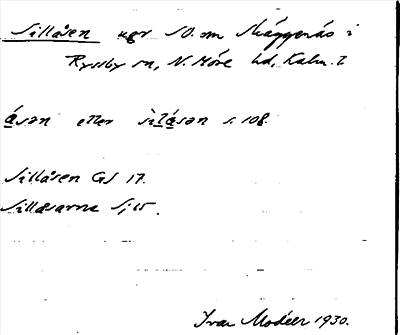 Sillåsen kgr SO. om Skäggenäs i
Ryssby sn, N. Möre hd, Kalm. l
åsən eller sìlåsən s. 108.
Sillåsen GS 17.
Sillåsarna Sj 15.
Ivar Modéer 1930.